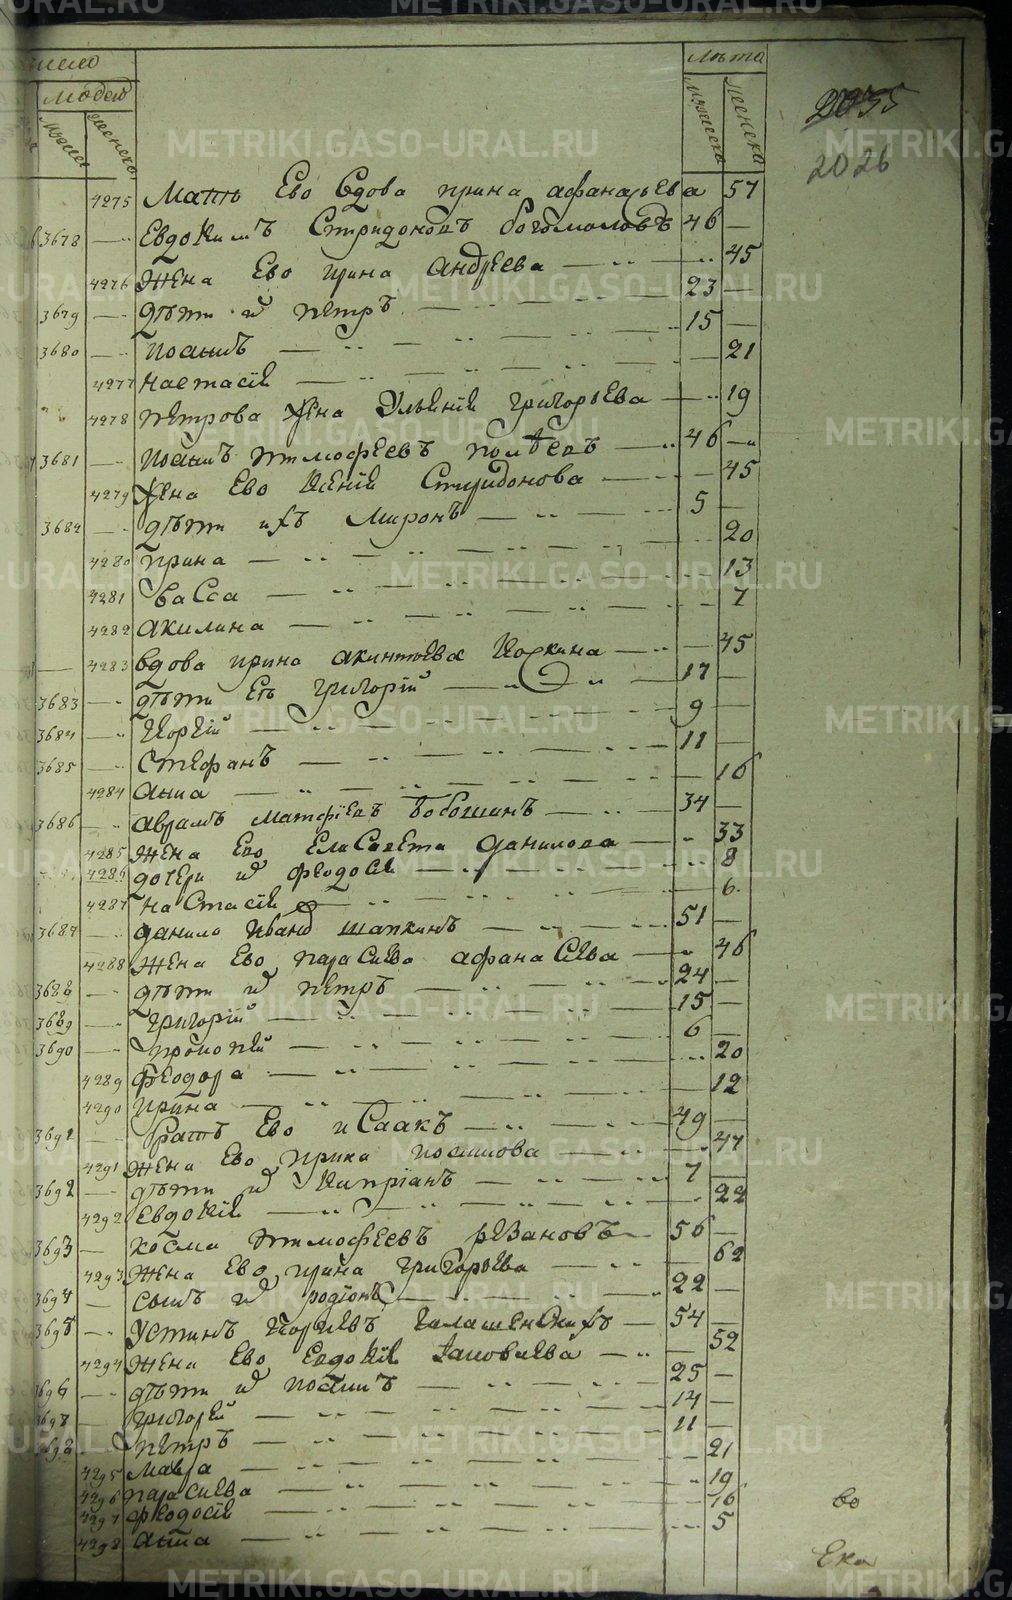 число
лѣта
людей
мужеска
женска
мужска
женска
2035
2026
4275 Мать Ево вдова ирина афанасьева 57
3678 Евдокимъ Спиридоновъ богомоловъ 46
4276 жена Ево ирина андреева 45
3679 дѣти и петръ 23
3680 иоаннъ 15
4277 настасiя 21
4278 петрова жена Ульянiя григорьева 19
3681 иоаннъ тимофеевъ 46
4279 жена Ево ксенiя Спиридонова 45
3682 дѣти ихъ миронъ 5
4280 ирина 20
4281 васса 13
4282 акилина 7
4283 вдова ирина акинтьева 45
3683 дѣти Еѣ григорiй 17
3684 георгiй 9
3685 Стефанъ 11
4284 анна 16
3686 аврамъ матфiевъ бобошинъ 34
4285 жена Ево Елисавета данилова 33
4286 дочери и феодосiя 8
4287 настасiя 6
3687 данило иванъ шапкинъ 51
4288 жена Ево параскева афанасiева 46
3688 дѣти и петръ 24
3689 григорiй 15
3690 прокопей 6
4289 феодора 20
4290 ирина 12
3691 братъ Ево исаакъ 49
4291 жена Ево ирина иоаннова 47
3692 дѣти и кипрiанъ 7
4292 Евдокiя 22
3693 косма тимофеевъ резановъ 56
4293 жена Ево ирина григорьева 62
3694 сынъ и родiонъ 22
3695 Устинъ 54
4294 жена Ево Евдокiя 52
3696 дѣти и иоаннъ 25
3697 григорей 14
3698 петръ 11
4295 мавра 21
4296 параскева 19
4297 феодосiя 16
4298 анна 5
во
Ека
METRIKI.GASO-URAL.RU